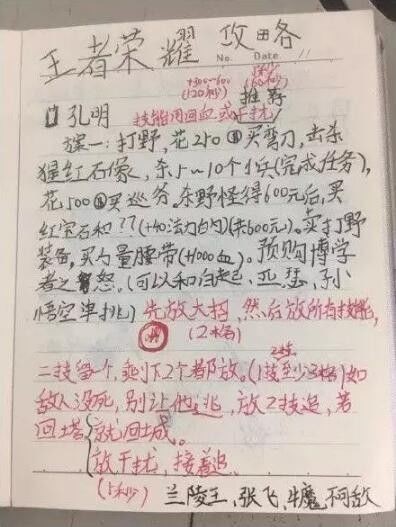 王者荣耀 攻略
No. Date
+300~600 (120秒)
(60秒)
推荐
孔明 技能用回血或干扰
一:打野,花250买弯刀,击杀
猩红石像,杀5~10个小兵(完成任务),
花500买巡务.杀野怪得600元后,买
红宝石和??(+40法力白勺)(共600元)。卖打野
装备,买力量腰带(+1000血)。预购博学
者之怒。(可以和白起、亚瑟、孙
悟空单挑)先放大招,然后放所有技能,
(2格)
二技留一个,剩下2个都放。(1技至少3格)如
敌人没死,别让他逃,放2技追,若
回塔 就回城。
放干扰,接着追。
(5秒) 兰陵王、张飞、牛魔、阿敌